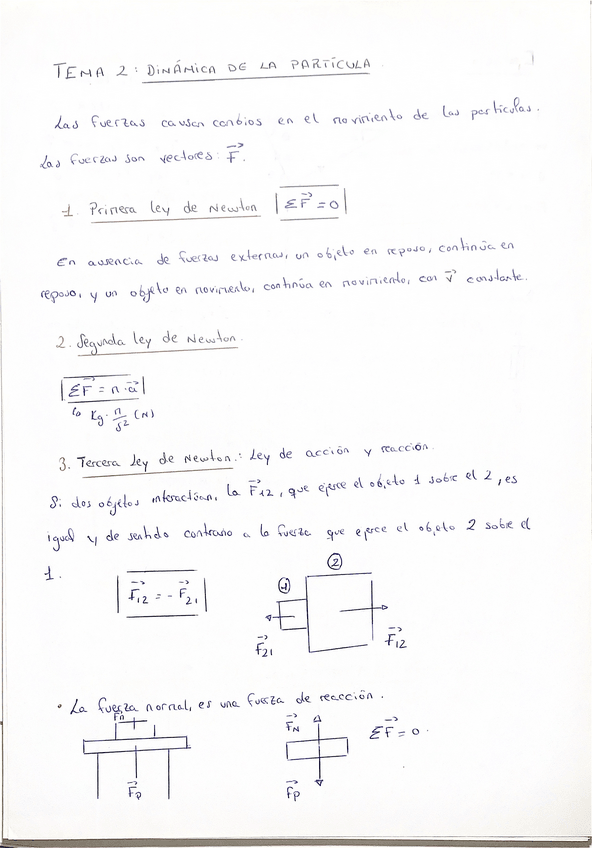 TEMA 2: DINÁMICA DE LA PARTÍCULA.
Las fuerzas causan cambios en el movimiento de las partículas.
Las fuerzas son vectores: F⃗.
1. Primera ley de Newton |ΣF⃗ = 0|
En ausencia de fuerzas externas, un objeto en reposo, continúa en
reposo, y un objeto en movimiento, continúa en movimiento, con v⃗ constante.
2. Segunda ley de Newton.
|ΣF⃗ = m·a⃗|
↳ Kg·m/s² (N)
3. Tercera ley de Newton.: Ley de acción y reacción.
Si dos objetos interactúan, la F⃗12, que ejerce el objeto 1 sobre el 2, es
igual y de sentido contrario a la fuerza que ejerce el objeto 2 sobre el
1.
|F⃗12 = -F⃗21|
1
2
F⃗21
F⃗12
• La fuerza normal, es una fuerza de reacción.
Fn
F⃗p
F⃗N
F⃗p
ΣF⃗ = 0.